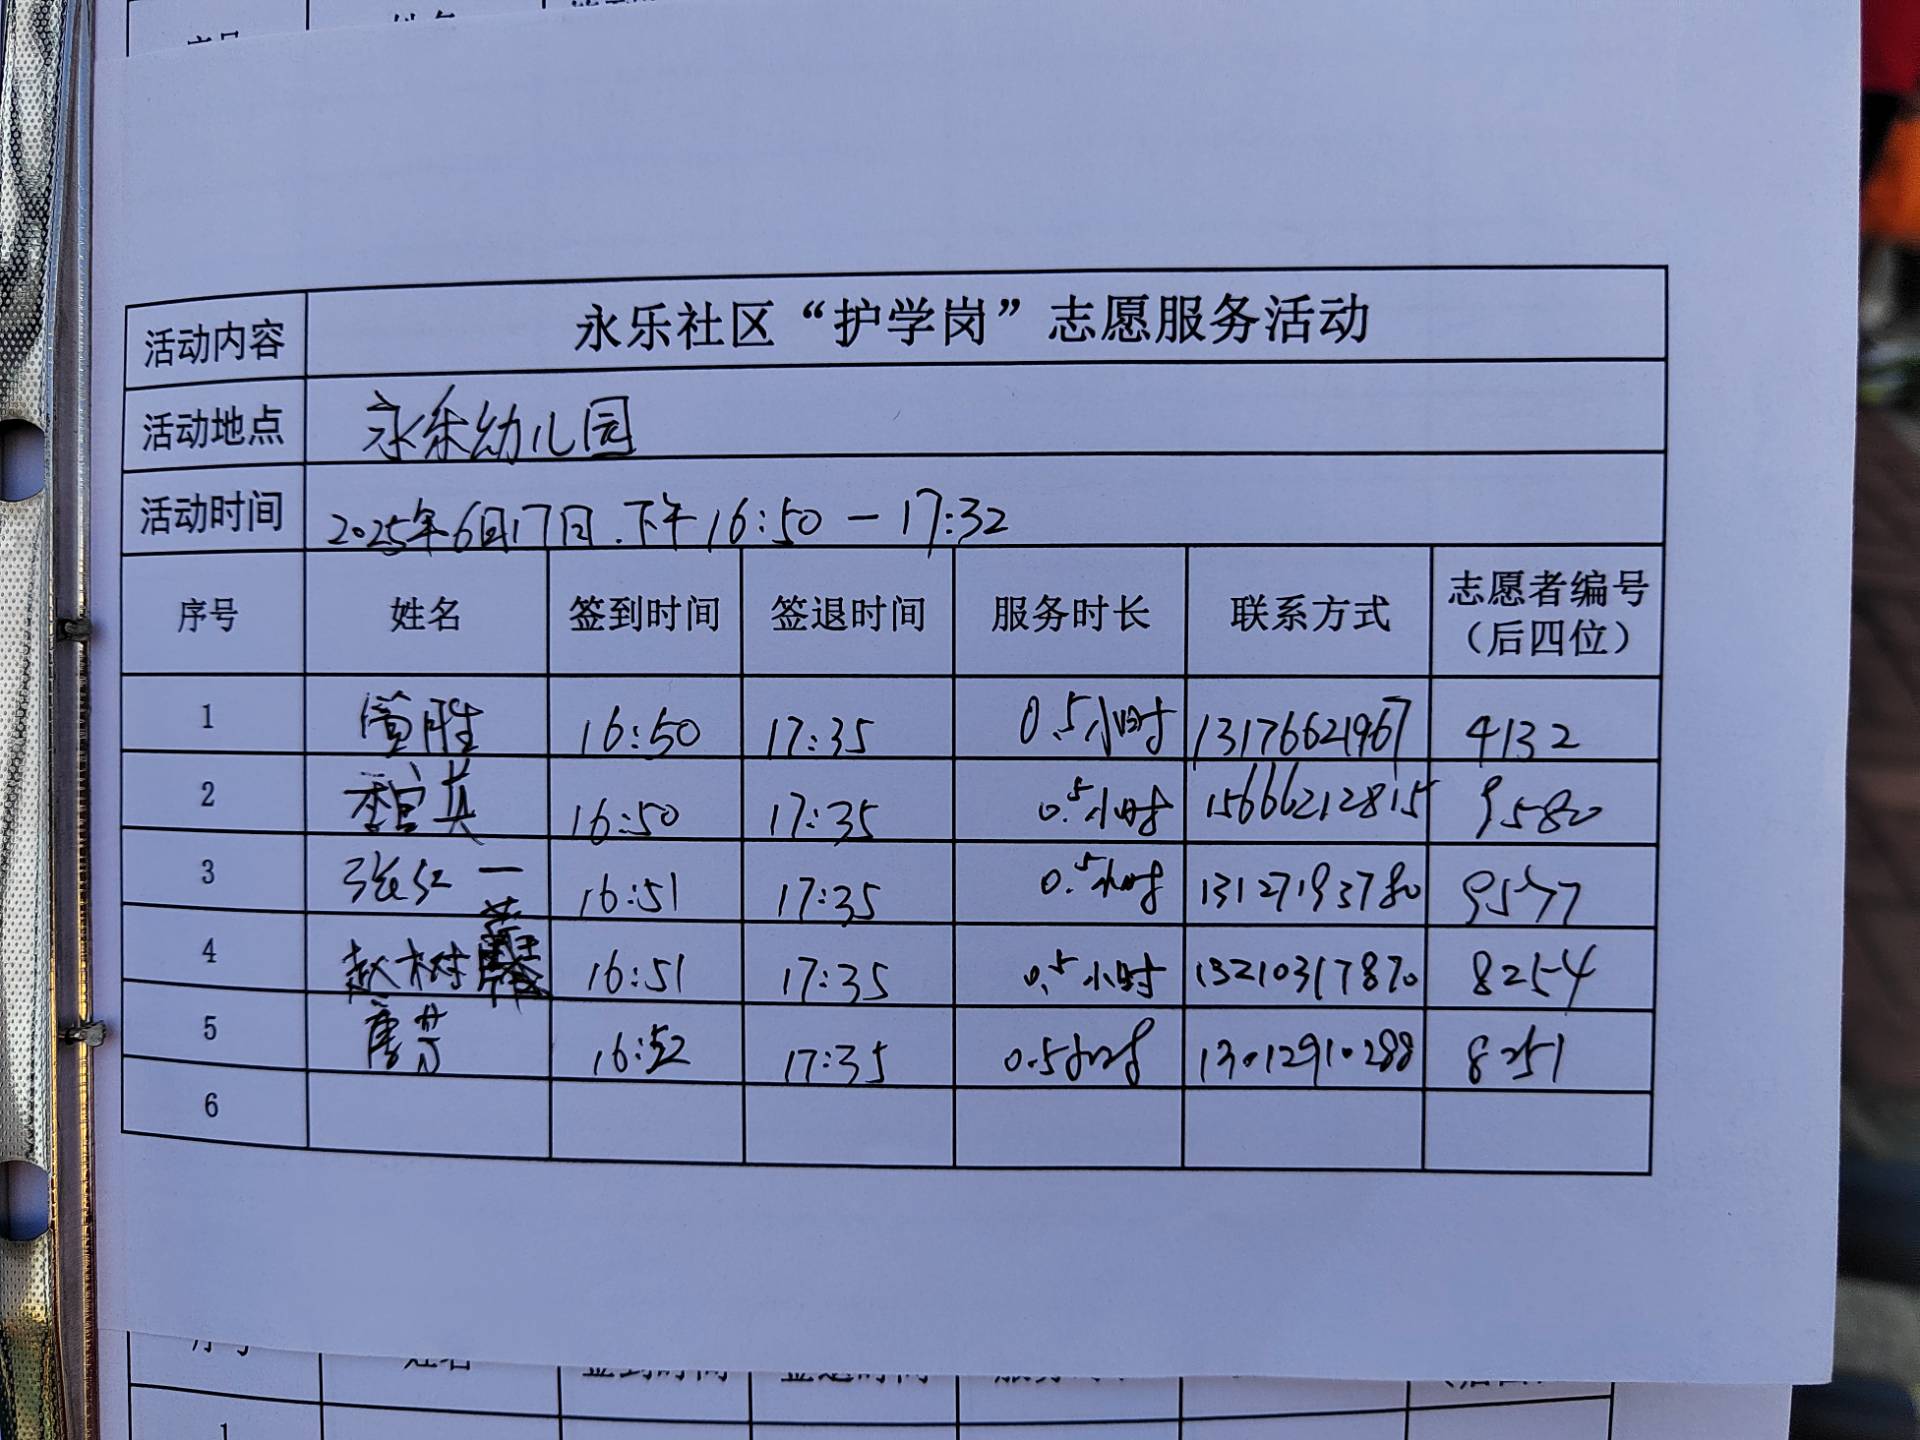 活动内容 永乐社区“护学岗”志愿服务活动
活动地点 永乐幼儿园
活动时间 2025年6月17日.下午16:50－17:32
序号 姓名 签到时间 签退时间 服务时长 联系方式 志愿者编号
（后四位）
1 董胜 16:50 17:35 0.5小时 13176621967 4132
2 16:50 17:35 0.5小时 15666212815 9580
3 张红一 16:51 17:35 0.5小时 13127193780 9577
4 赵树 16:51 17:35 0.5小时 13210317870 8254
5 唐芳 16:52 17:35 0.5小时 13012910288 8251
6
序号 姓名 签到时间 签退时间
1